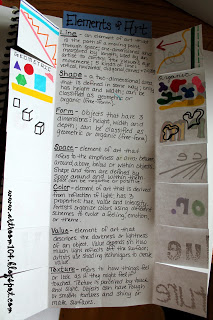 Elements of Art
Line - an element of art that
is the path of a moving point
through space.
movement: 5 kinds of lines:
vertical, horizontal, diagonal, curved,
Shape - a two-dimensional area
that is defined in some way.
has height and width; can be
classified as geometric or
organic (free form)
Form - objects that have 3
dimensions: height, width and
depth; can be classified as
geometric or organic (free form)
Space - element of art that
refers to the emptiness or area between
around, above, below or within objects.
Shape and form are defined by
space around and within them.
Color - element of art that is derived
from reflection of light; has 3
properties: hue, value and intensity.
Artists organize colors using color
schemes to evoke a feeling, emotion
or theme.
Value - element of art that
describes the darkness or lightness
of an object. Value depends on how
much light reflects off the surface;
artists use shading techniques to create
value.
Texture - refers to how things feel
or look as if they might feel if
touched. Texture is perceived by touch
and sight. Objects can have rough
or smooth textures and shiny or
matte surfaces.
organic
www.artroom104.blogspot.com